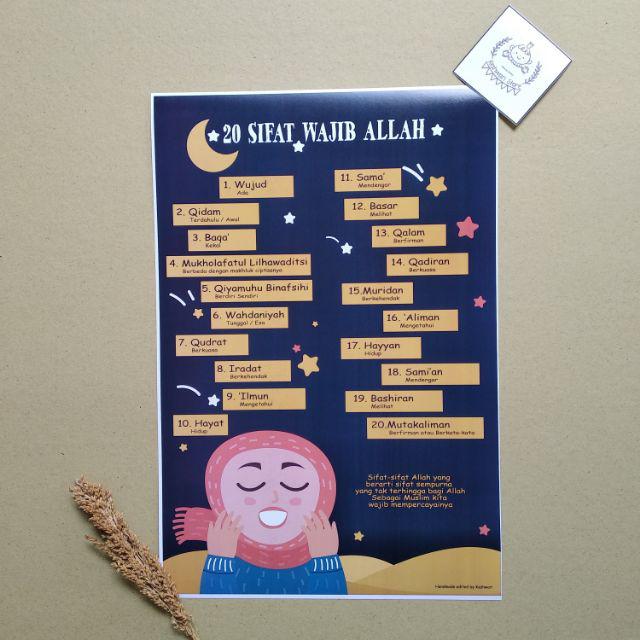 20 SIFAT WAJIB ALLAH
1. Wujud
Ada
2. Qidam
Terdahulu / Awal
3. Baqa'
Kekal
4. Mukholafatul Lilhawaditsi
Berbeda dengan makhluk ciptaanya
5. Qiyamuhu Binafsihi
Berdiri Sendiri
6. Wahdaniyah
Tunggal / Esa
7. Qudrat
Berkuasa
8. Iradat
Berkehendak
9. 'Ilmun
Mengetahui
10. Hayat
Hidup
11. Sama'
Mendengar
12. Basar
Melihat
13. Qalam
Berfirman
14. Qadiran
Berkuasa
15. Muridan
Berkehendak
16. 'Aliman
Mengetahui
17. Hayyan
Hidup
18. Sami'an
Mendengar
19. Bashiran
Melihat
20. Mutakaliman
Berfirman atau Berkata-kata
Sifat-sifat Allah yang
berarti sifat sempurna
yang tak terhingga bagi Allah
Sebagai Muslim kita
wajib mempercayainya